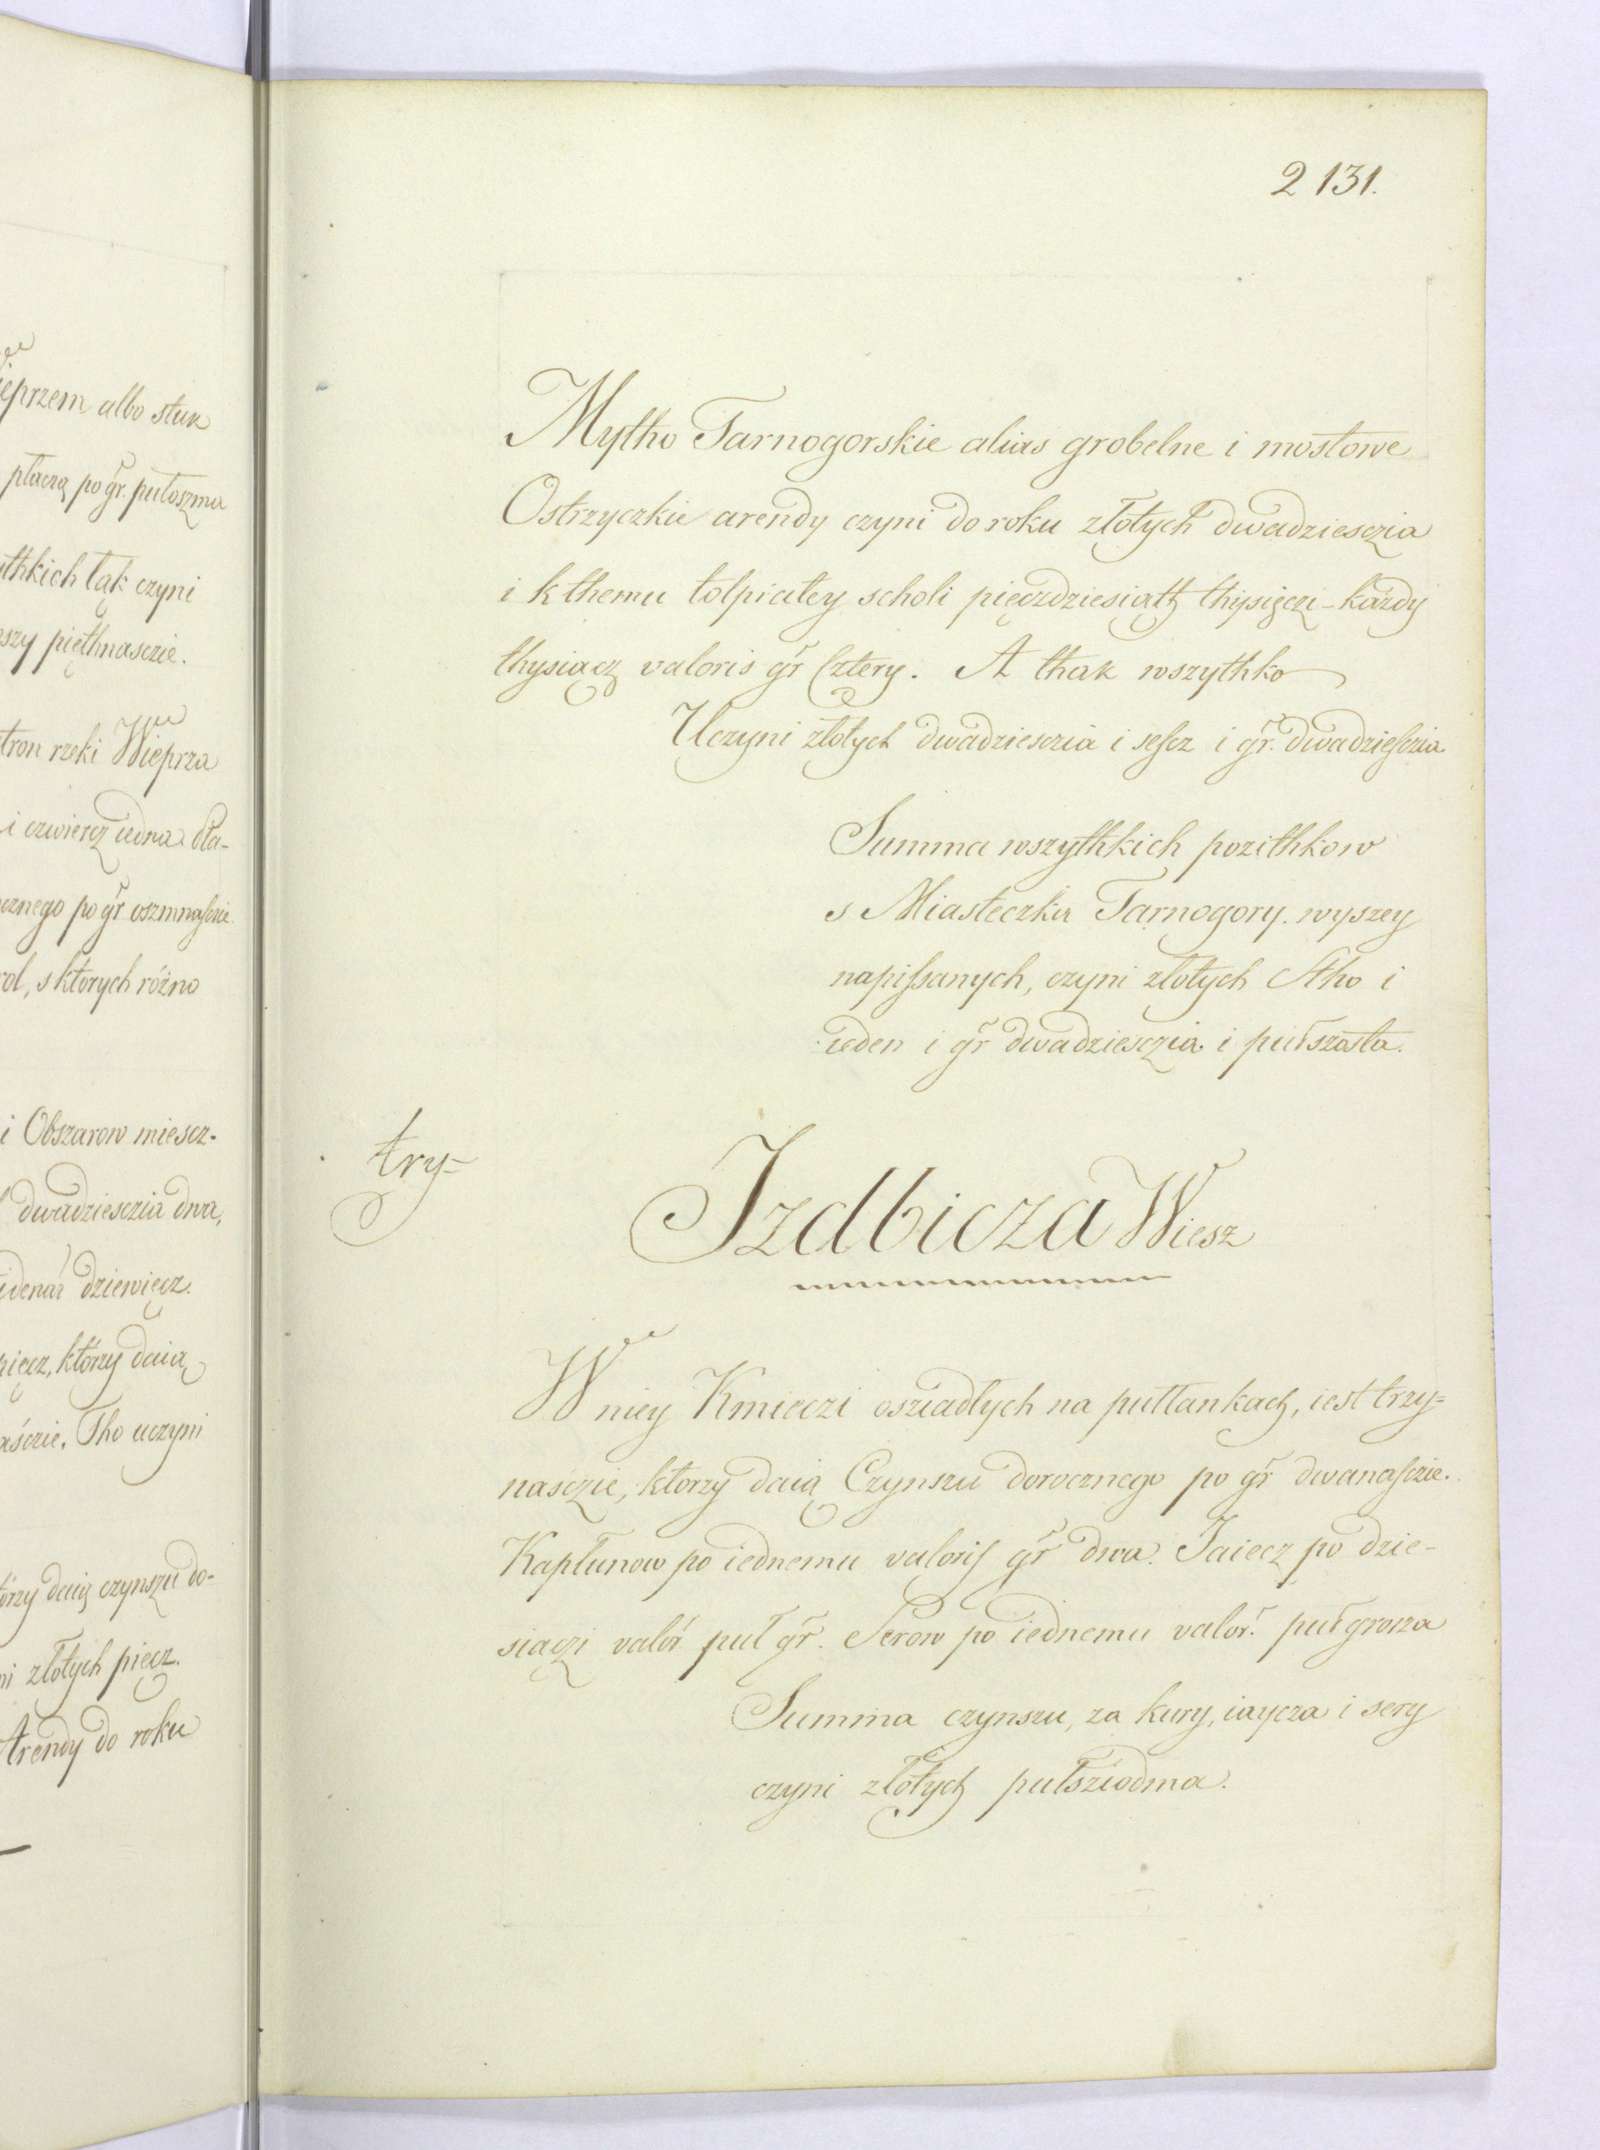 ieprzem albo stuk
płaczą po gr. pułoszma
ythkich łąk czyni
szy piethnasczie.
tron rzeki Wieprza
i czwiercz iedna dla-
cznego po gr oszmnasczie
rol, s ktorych różno
i Obszarow miescz-
dwadziesczia dwa,
idenar dziewięcz.
pięcz, którzy daią
aśczie. Tho uczyni
tórzy daią czynszu do-
ni złotych pięcz.
Arendy do roku
2 131.
Mytho Tarnogorskie alias grobelne i mostowe
Ostrzyczkie arendy czyni do roku złotych dwadziesczia
i k themu tolpiatey scholi pięczdziesiąth thysięczi - każdy
thysiącz valoris gr Cztery. A thak wszythko
Uczyni złotych dwadziesczia i sescz i gr. dwadziesczia
Summa wszythkich pozithkow
s Miasteczka Tarnogory. wyszey
napissanych, czyni złotych Stho i
ieden i gr dwadziesczia i pułszosta.
try-
Izdbicza Wiesz
W niey Kmieczi osziadłych na pułłankach, iest trzy=
nasczie, ktorzy daią Czynszu dorocznego po gr dwanasczie.
Kapłunow po iednemu valoris gr dwa. Jaiecz po dzie-
siączi valor puł gr. Serow po iednemu valor. puł grosza
Summa czynszu, za kury, iaycza i sery
czyni złotych pułsziodma.